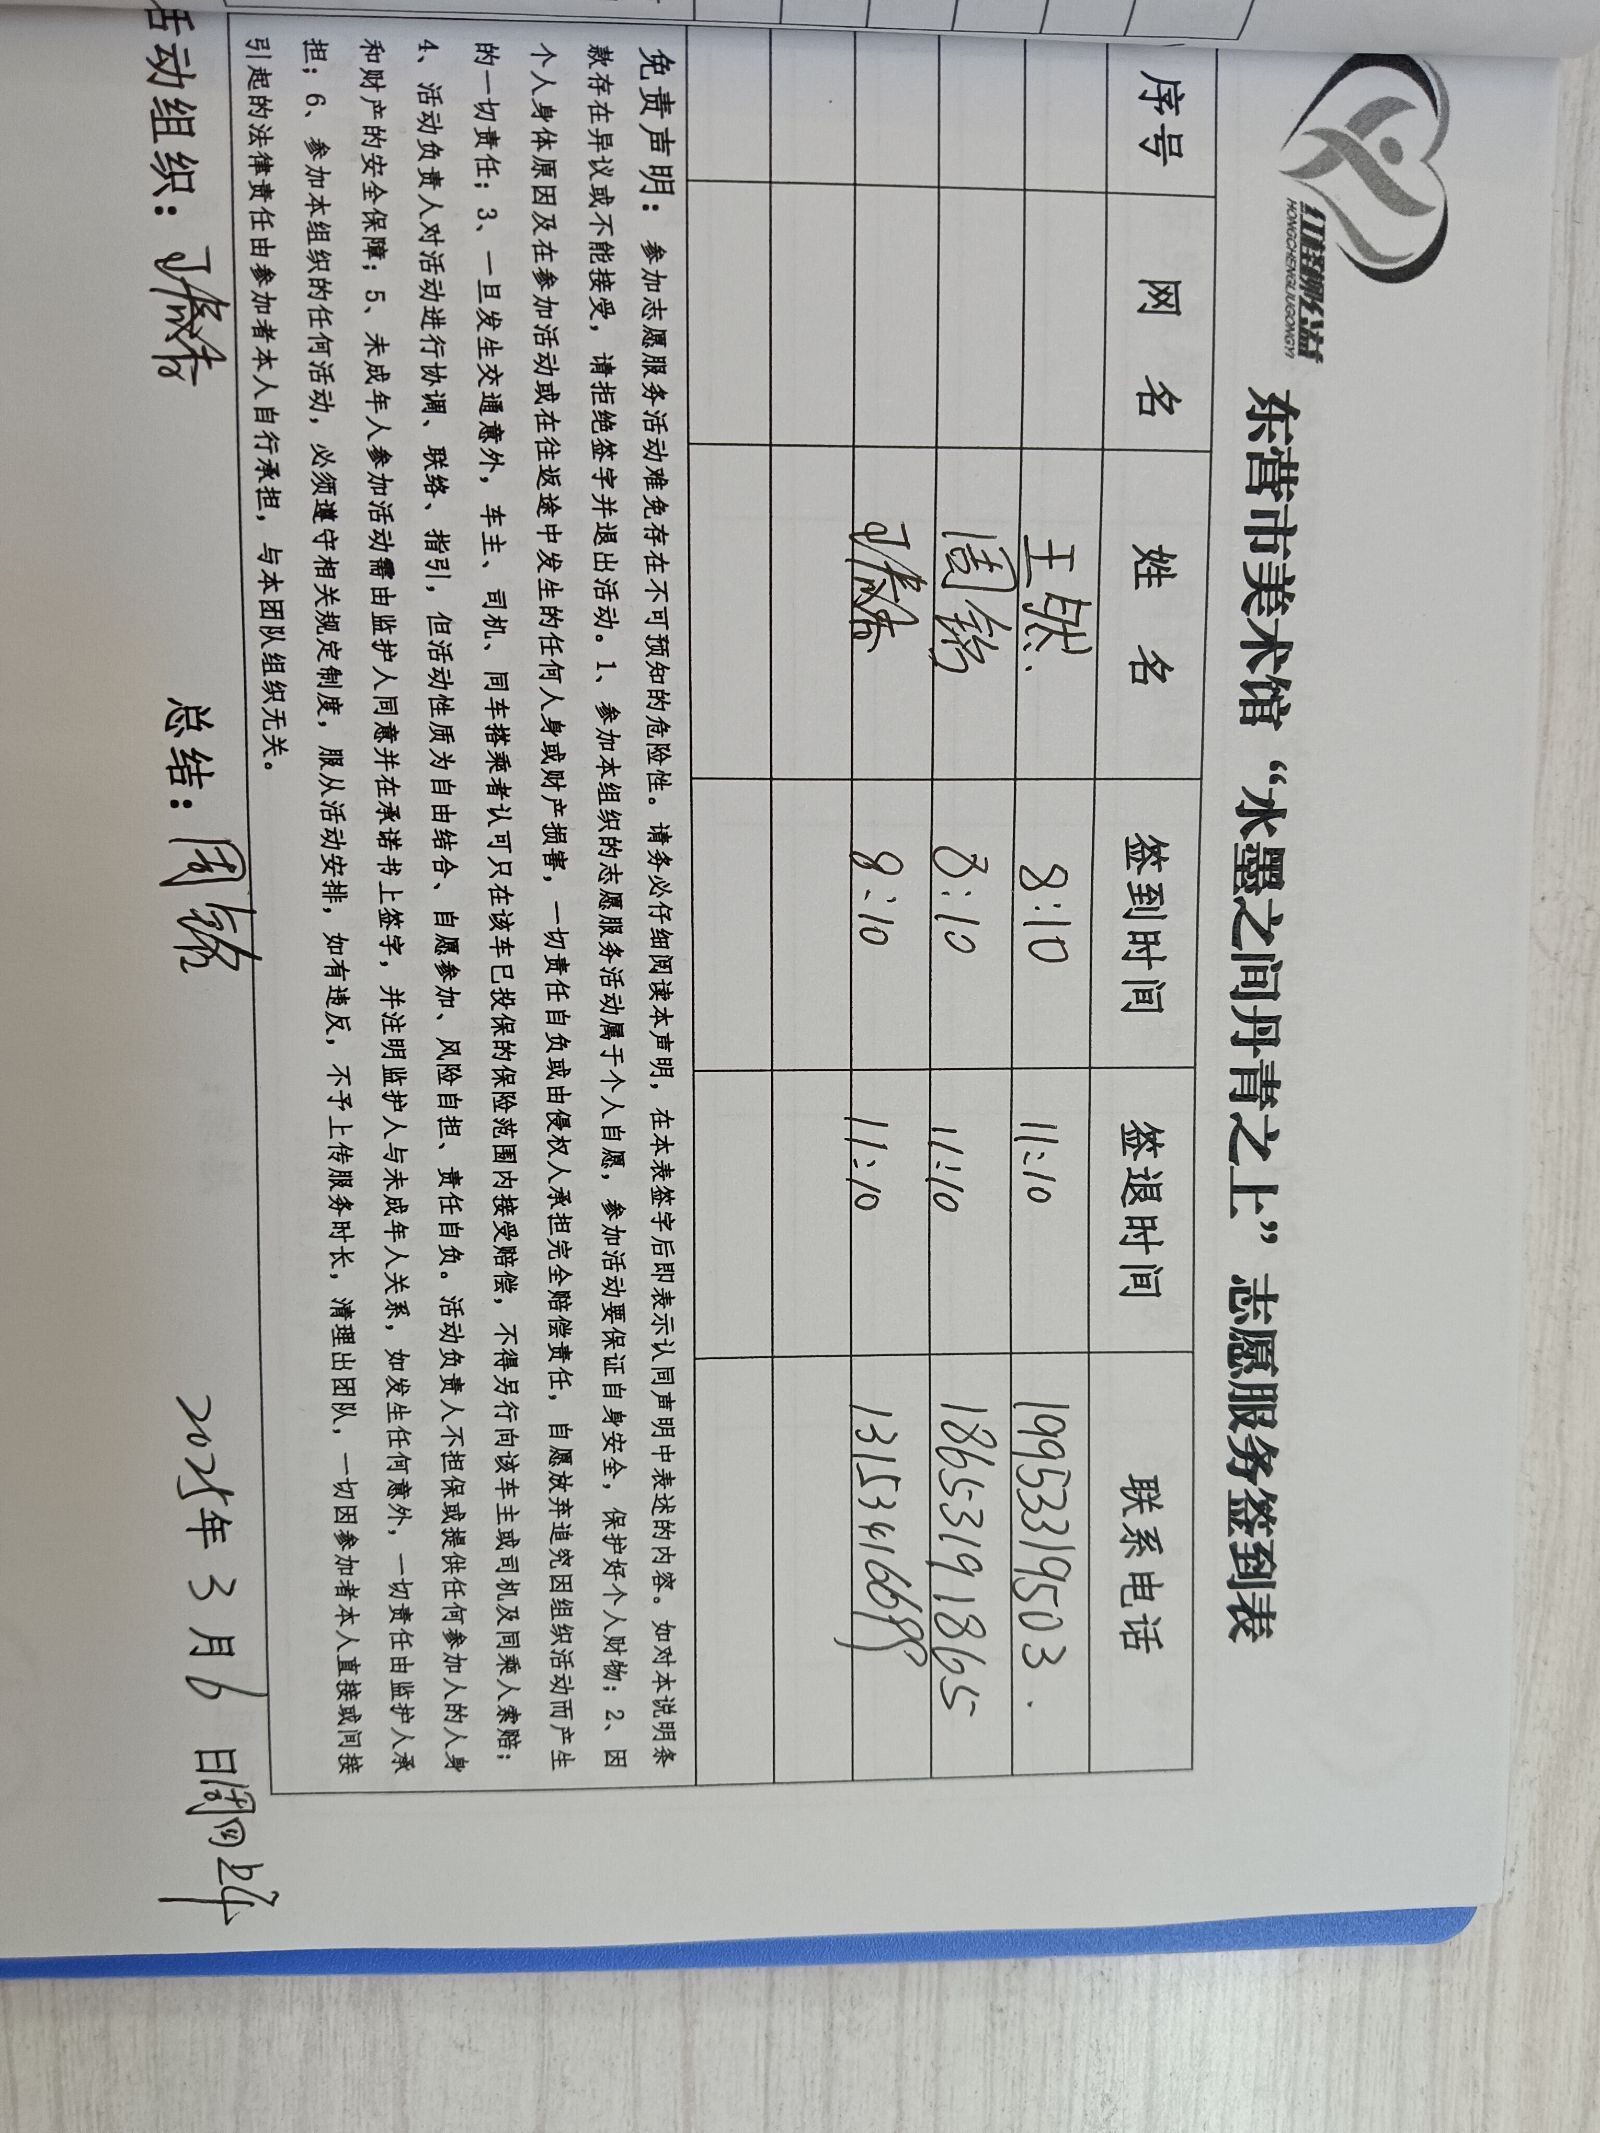 红柽柳公益
HONGCHENGLIUGONGYI
东营市美术馆“水墨之间丹青之上”志愿服务签到表
序号 网 名 姓 名 签到时间 签退时间 联系电话
王 8:10 11:10 19953319503.
周铭 8:10 11:10 18653191865
8:10 11:10
免责声明：参加志愿服务活动难免存在不可预知的危险性。请务必仔细阅读本声明，在本表签字后即表示认同声明中表述的内容。如对本说明条
款存在异议或不能接受，请拒绝签字并退出活动。1、参加本组织的志愿服务活动属于个人自愿，参加活动要保证自身安全，保护好个人财物；2、因
个人身体原因及在参加活动或在往返途中发生的任何人身或财产损害，一切责任自负或由侵权人承担完全赔偿责任，自愿放弃追究因组织活动而产生
的一切责任；3、一旦发生交通意外，车主、司机、同车搭乘者认可只在该车已投保的保险范围内接受赔偿，不得另行向该车主或司机及同乘人索赔；
4、活动负责人对活动进行协调、联络、指引，但活动性质为自由结合、自愿参加、风险自担、责任自负。活动负责人不担保或提供任何参加人的人身
和财产的安全保障；5、未成年人参加活动需由监护人同意并在承诺书上签字，并注明监护人与未成年人关系，如发生任何意外，一切责任由监护人承
担；6、参加本组织的任何活动，必须遵守相关规定制度，服从活动安排，如有违反，不予上传服务时长，清理出团队，一切因参加者本人直接或间接
引起的法律责任由参加者本人自行承担，与本团队组织无关。
活动组织： 总结：周铭 2025年3月6日周四上午